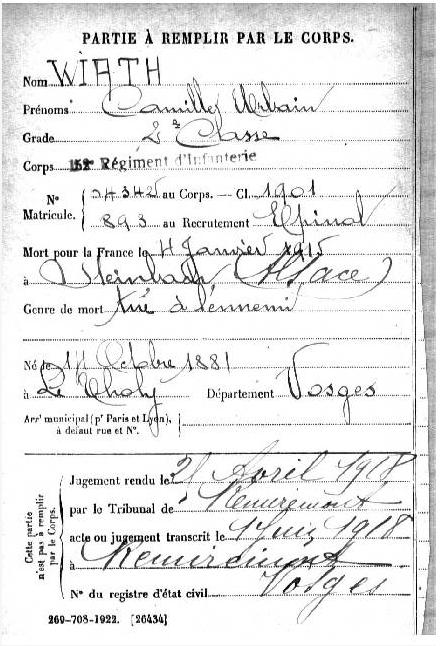 PARTIE À REMPLIR PAR LE CORPS.
Nom WIATH
Prénoms Camille Urbain
Grade 2e Classe
Corps 152e Régiment d'Infanterie
N° Matricule. { au Corps. — Cl. 1901
893 au Recrutement Epinal
Mort pour la France le 4 Janvier 1915
à Steinbach (Alsace)
Genre de mort tué à l'ennemi
Né le Octobre 1881
à Le Tholy Département Vosges
Arrt municipal (pr Paris et Lyon),
à défaut rue et N°.
Cette partie n'est pas à remplir par le Corps.
Jugement rendu le Avril 1918
par le Tribunal de Remiremont
acte ou jugement transcrit le 1918
à Remiremont
Vosges
N° du registre d'état civil
269-708-1922. [26434]